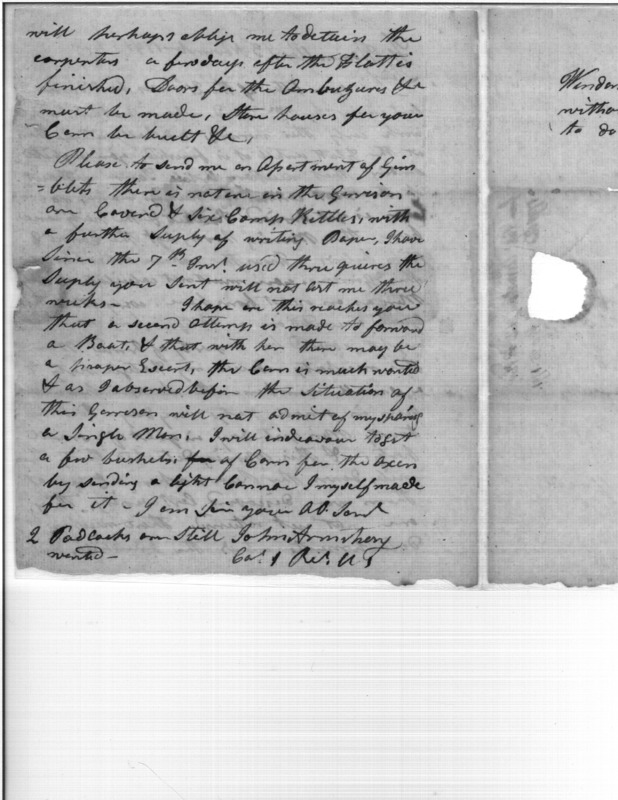 will perhaps oblige me to detain the
carpenters a few days after the Flatt is
finished, Doors for the Ambuzures &c
must be made, Store houses for your
Corn be built &c,
Please to send me an Apartment of Gim
=blets there is not one in the Garrison
one Coverd & Six Camp Kettles, with
a further Supply of writing Paper, I have
Since the 7th Inst. used three quires the
Supply you Sent will not last me three
weeks — I hope ere this reaches you
that a second attempt is made to forward
a Boat, & that with her there may be
a proper Escort, the Corn is much wanted
& as I observed before the Situation of
this Garrison will not admit of my sparing
a Single Man, I will indeavour to get
a few bushels of Corn for the oxen
by sending a light Cannoe I myself made
for it — I am Sir your Ob. Servt
2 Padlocks are Still John Armstrong
wanted — Capt. 1 Rt. US
Windows
witho
to do